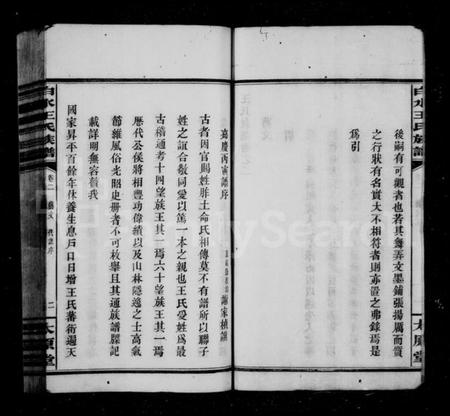 後嗣有可觀者也若其舞弄文墨鋪張揚厲而實
之行狀有名實大不相符者則亦置之弗錄焉是
為引
白水王氏族譜
太原堂
嘉慶丙寅譜序
謝家槙譔
古者因官賜姓胙土命氏相傳莫不有譜所以聯子
姓之誼合敬同愛以篤一本之親也王氏受姓為最
古稽通考十四望族王其一焉六十望族王其一焉
歷代公侯將相豐功偉績以及山林隱逸之士高氣
節維風俗光昭史冊者不可枚舉且其通族譜牒記
載詳明無容贅我
國家昇平百餘年休養生息戶口日增王氏蕃衍遍天
白水王氏族譜
卷二
二
太原堂
FamilySearch